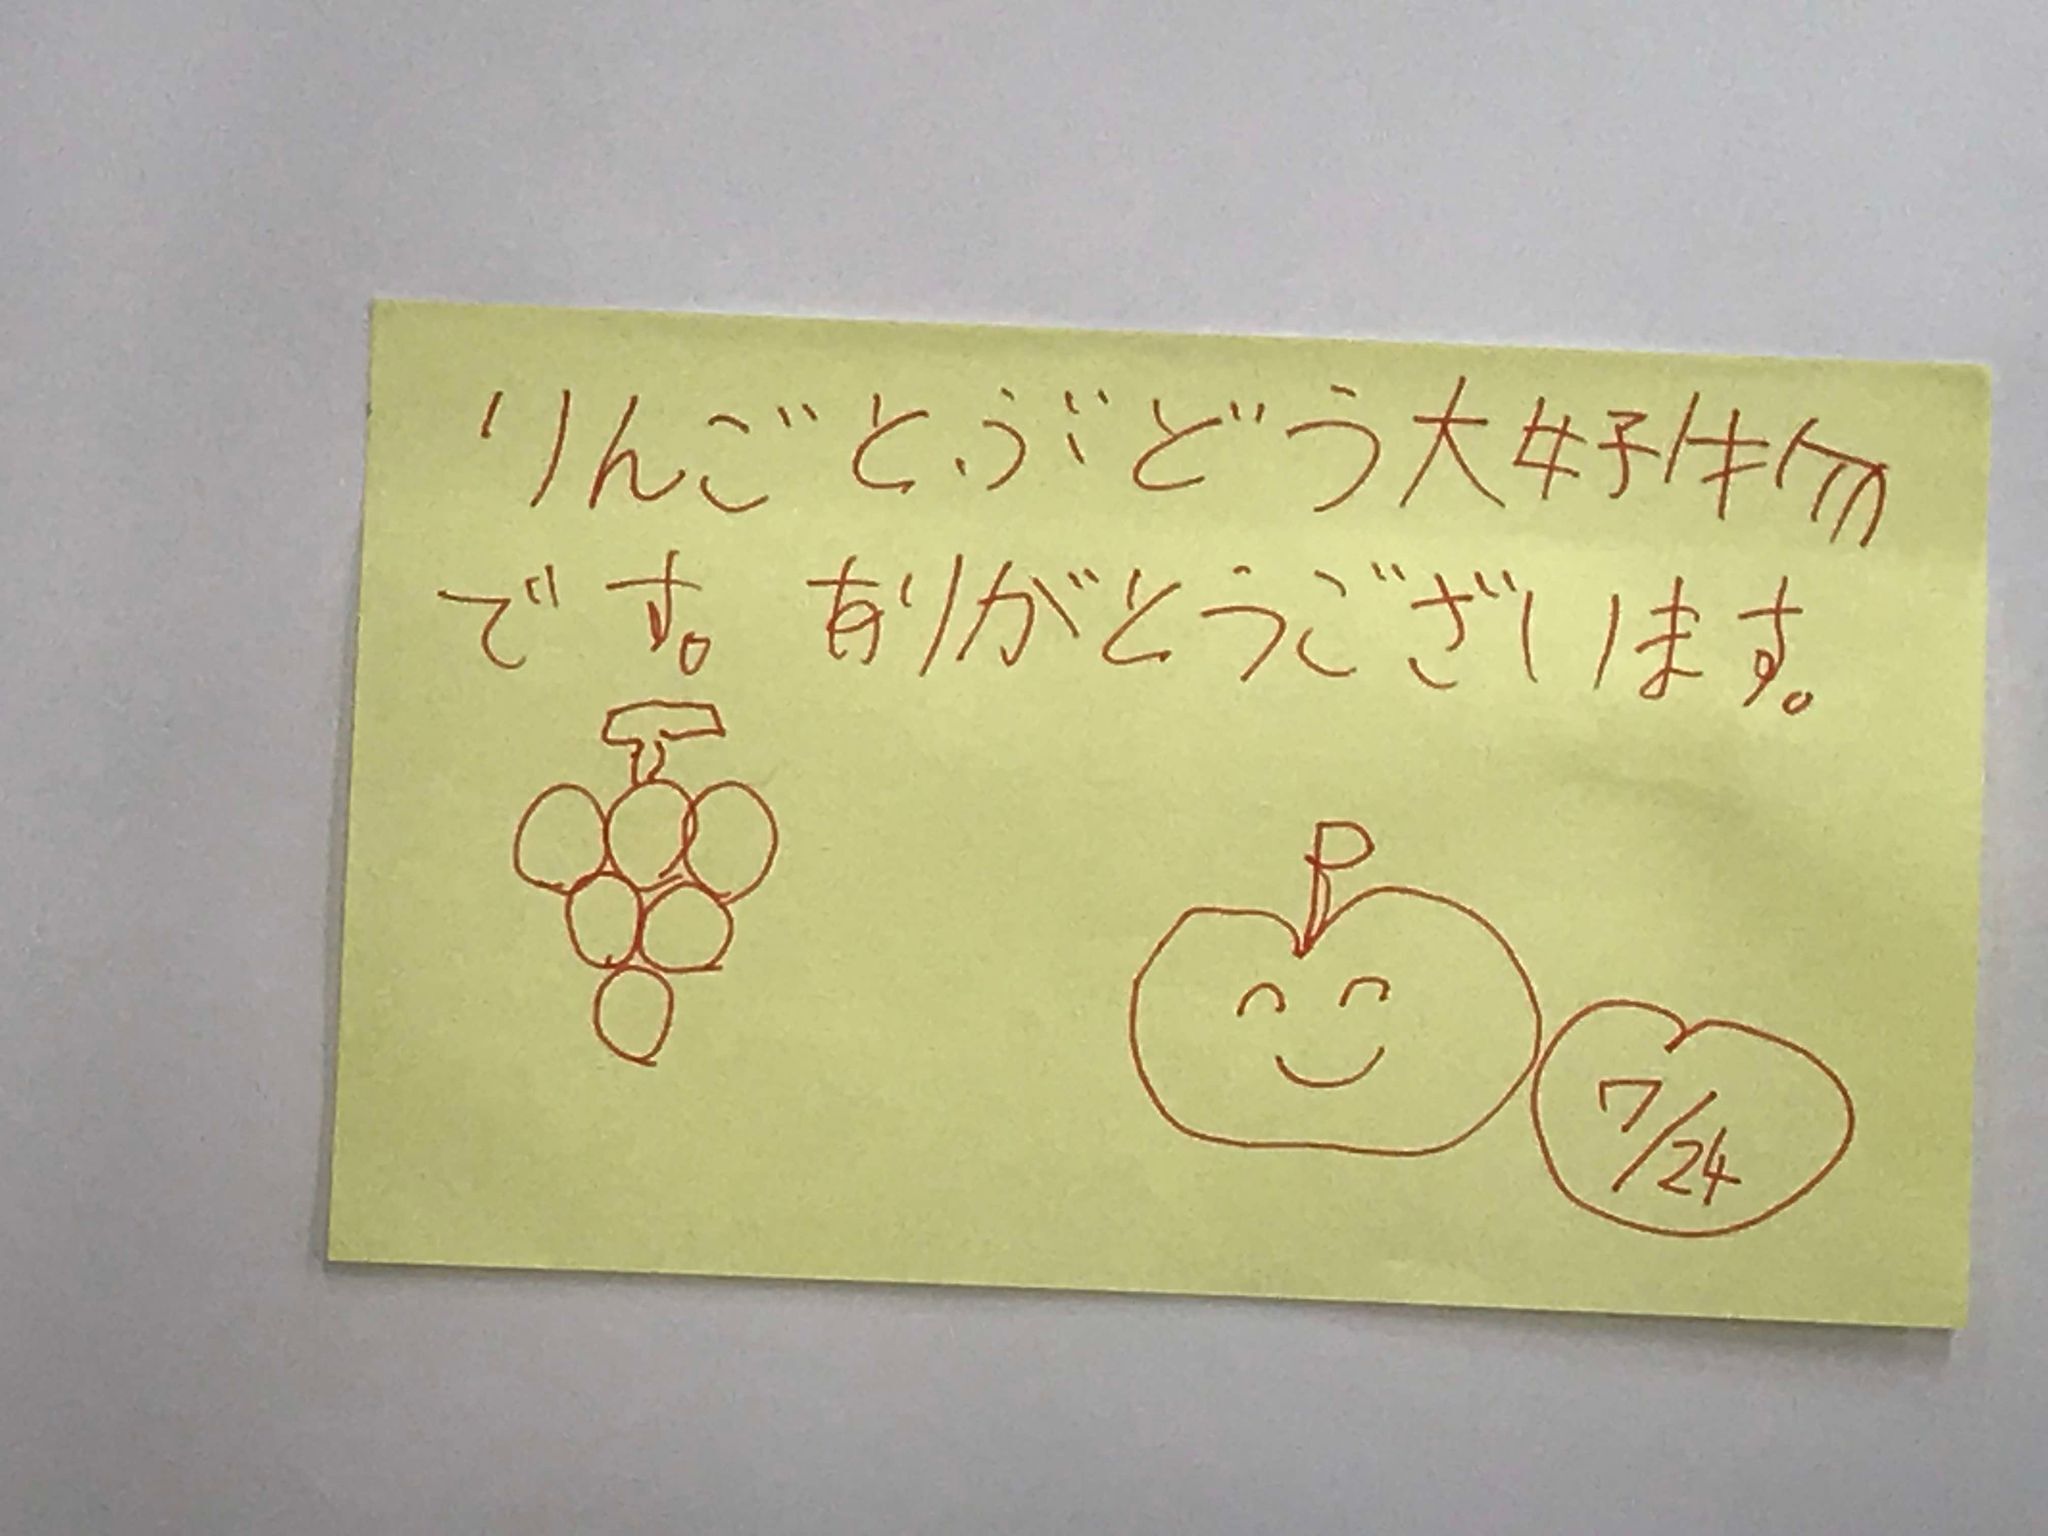 りんごとぶどう大好物
です。ありがとうございます。
7/24